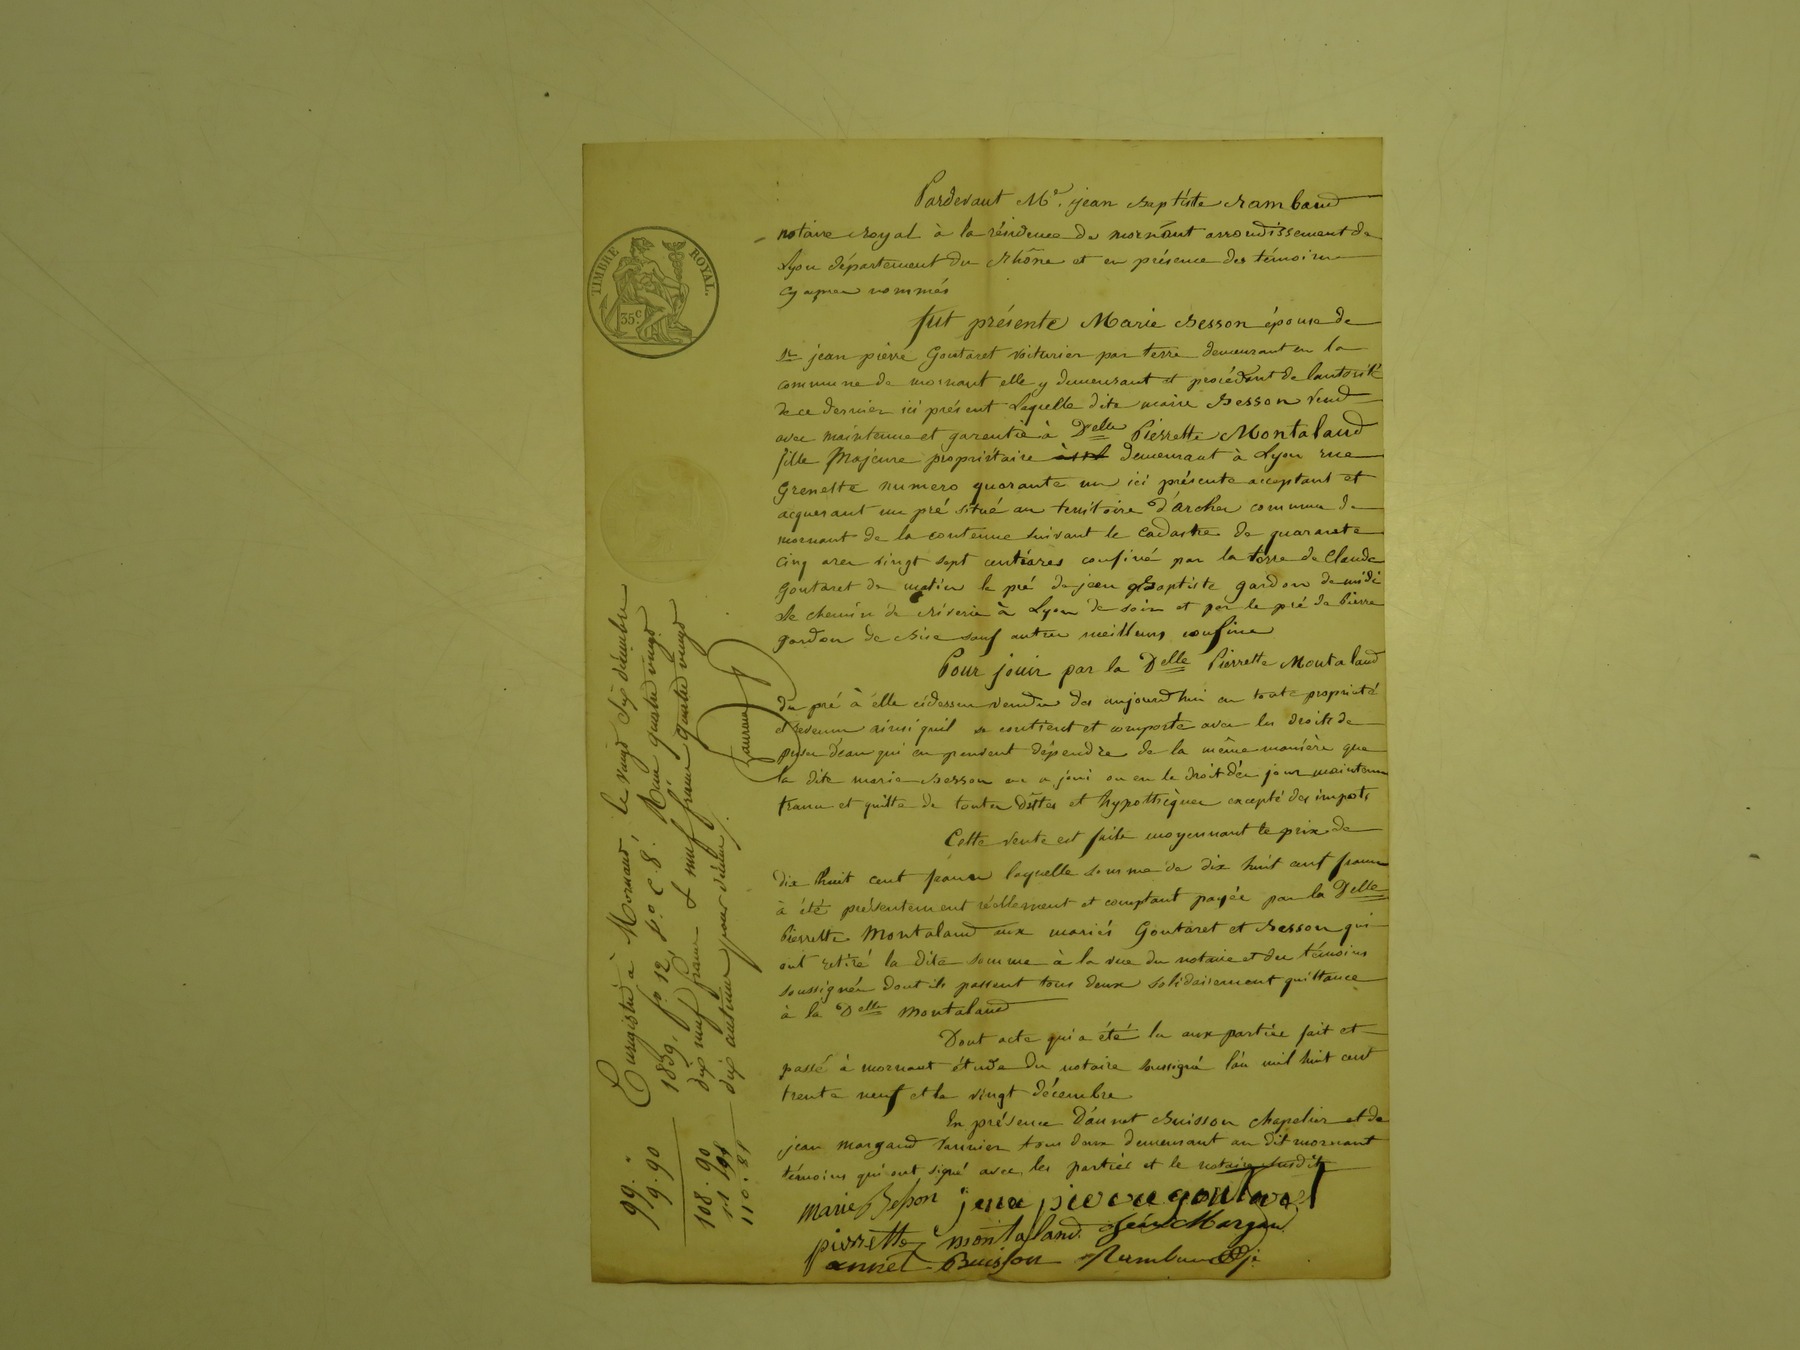 TIMBRE ROYAL.
35c.
Pardevant Me. jean Baptiste Rambaud
notaire Royal à la résidence de mornant arrondissement de
Lyon département du Rhône et en présence des témoins
cy apres nommés
fut présente Marie Besson épouse de
Sr jean pierre Goutaret voiturier par terre demeurant en la
commune de mornant elle y demeurant et procédant de lautorité
de ce dernier ici présent Laquelle dite marie Besson vend
avec maintenue et garentie à Delle Pierrette Montaland
fille Majeure propriétaire demeurant à Lyon rue
Grenette numero quarante un ici présente acceptant et
acquerant un pré situé au territoire d'archer commune de
mornant de la contenue suivant le cadastre de quarante
cinq ares vingt sept centiares confiné par la terre de Claude
Goutaret de matin le pré de jean Baptiste gardon de midi
le chemin de Riverie à Lyon de soir et par le pré de Pierre
gardon de Bise sauf autres meilleurs confins
Pour jouir par la Delle Pierrette Montaland
du pré à élle cidessus vendu des aujourd'hui en toute propriété
et revenu ainsi quil se contient et comporte avec les droits de
prise d'eau qui en peuvent dépendre de la même manière que
la dite marie Besson en a joui ou eu le droit d'en jouir maintenu
franc et quitte de toutes dettes et hypothèques excepté des impots
Cette vente est faite moyennant le prix de
dix huit cent francs laquelle somme de dix huit cent francs
à été présentement réellement et comptant payée par la Delle
Pierrette Montaland aux mariés Goutaret et Besson qui
ont retiré la dite somme à la vue du notaire et des témoins
soussignés dont ils passent tous deux solidairement quittance
à la Delle Montaland
Dont acte qui a été lu aux parties fait et
passé à mornant étude du notaire soussigné l'an mil huit cent
trente neuf et le vingt décembre
En présence D'annet Buisson chapelier et de
jean margand vannier tous deux demeurant au dit mornant
témoins qui ont signé avec les parties et le notaire susdit
marie Besson jean pierre goutaret
pierrette montaland. jean Margand
annet Buisson Rambaud
Enregistré à Mornant le vingt six décembre
1839, fo. 12 Vo. C. 8. Reçu quatre vingt
dix neuf francs & neuf francs quatre vingt
dix centimes pour décime.
99. "
9. 90
108. 90
1. 198
110. 88